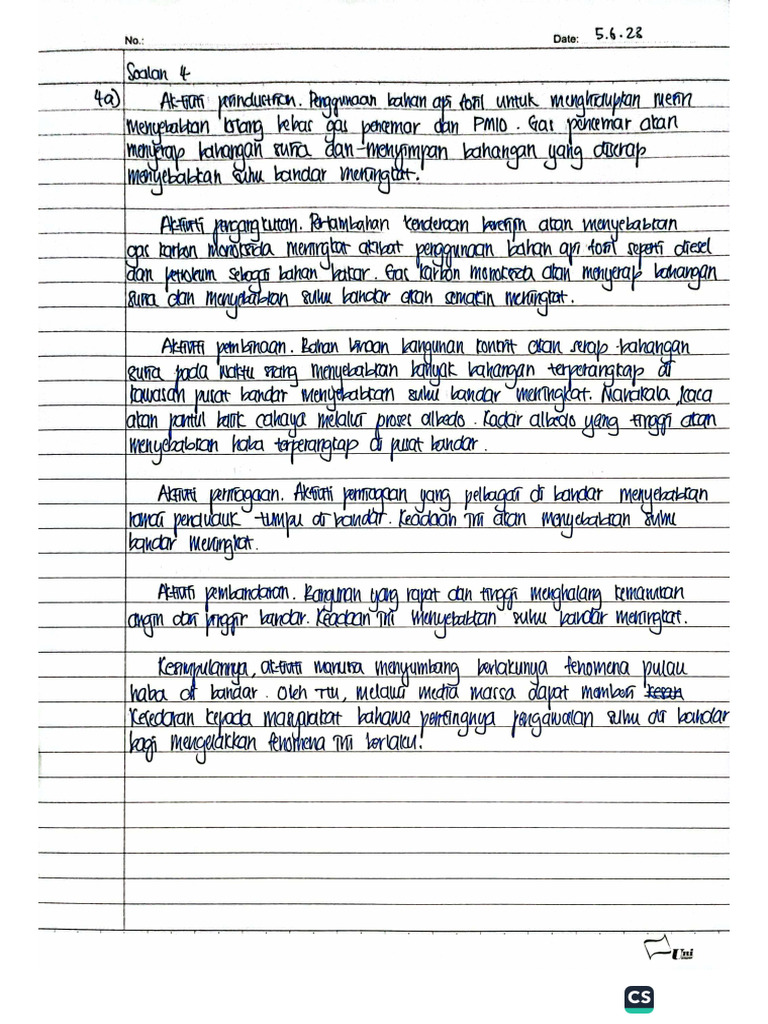 No.:
Date: 5.6.23
Soalan 4
4a) Aktiviti perindustrian. Penggunaan bahan api fosil untuk menghidupkan mesin
menyebabkan kilang bebas gas pencemar dan PM10. Gas pencemar akan
menyerap bahangan suria dan menyimpan bahangan yang diserap
menyebabkan suhu bandar meningkat.
Aktiviti pengangkutan. Pertambahan kenderaan berenjin akan menyebabkan
gas karbon monoksida meningkat akibat penggunaan bahan api fosil seperti diesel
dan petroleum sebagai bahan bakar. Gas karbon monoksida akan menyerap bahangan
suria dan menyebabkan suhu bandar akan semakin meningkat.
Aktiviti pembinaan. Bahan binaan bangunan konkrit akan serap bahangan
suria pada waktu siang menyebabkan banyak bahangan terperangkap di
kawasan pusat bandar menyebabkan suhu bandar meningkat. Manakala, kaca
akan pantul balik cahaya melalui proses albedo. Kadar albedo yang tinggi akan
menyebabkan haba terperangkap di pusat bandar.
Aktiviti perniagaan. Aktiviti perniagaan yang pelbagai di bandar menyebabkan
ramai penduduk tumpu di bandar. Keadaan ini akan menyebabkan suhu
bandar meningkat.
Aktiviti pembandaran. Bangunan yang rapat dan tinggi menghalang kemasukan
angin dari pinggir bandar. Keadaan ini menyebabkan suhu bandar meningkat.
Kesimpulannya, aktiviti manusia menyumbang berlakunya fenomena pulau
haba di bandar. Oleh itu, melalui media massa dapat memberi kesan
kesedaran kepada masyarakat bahawa pentingnya pengawalan suhu di bandar
bagi mengelakkan fenomena ini berlaku.
Uni
CS